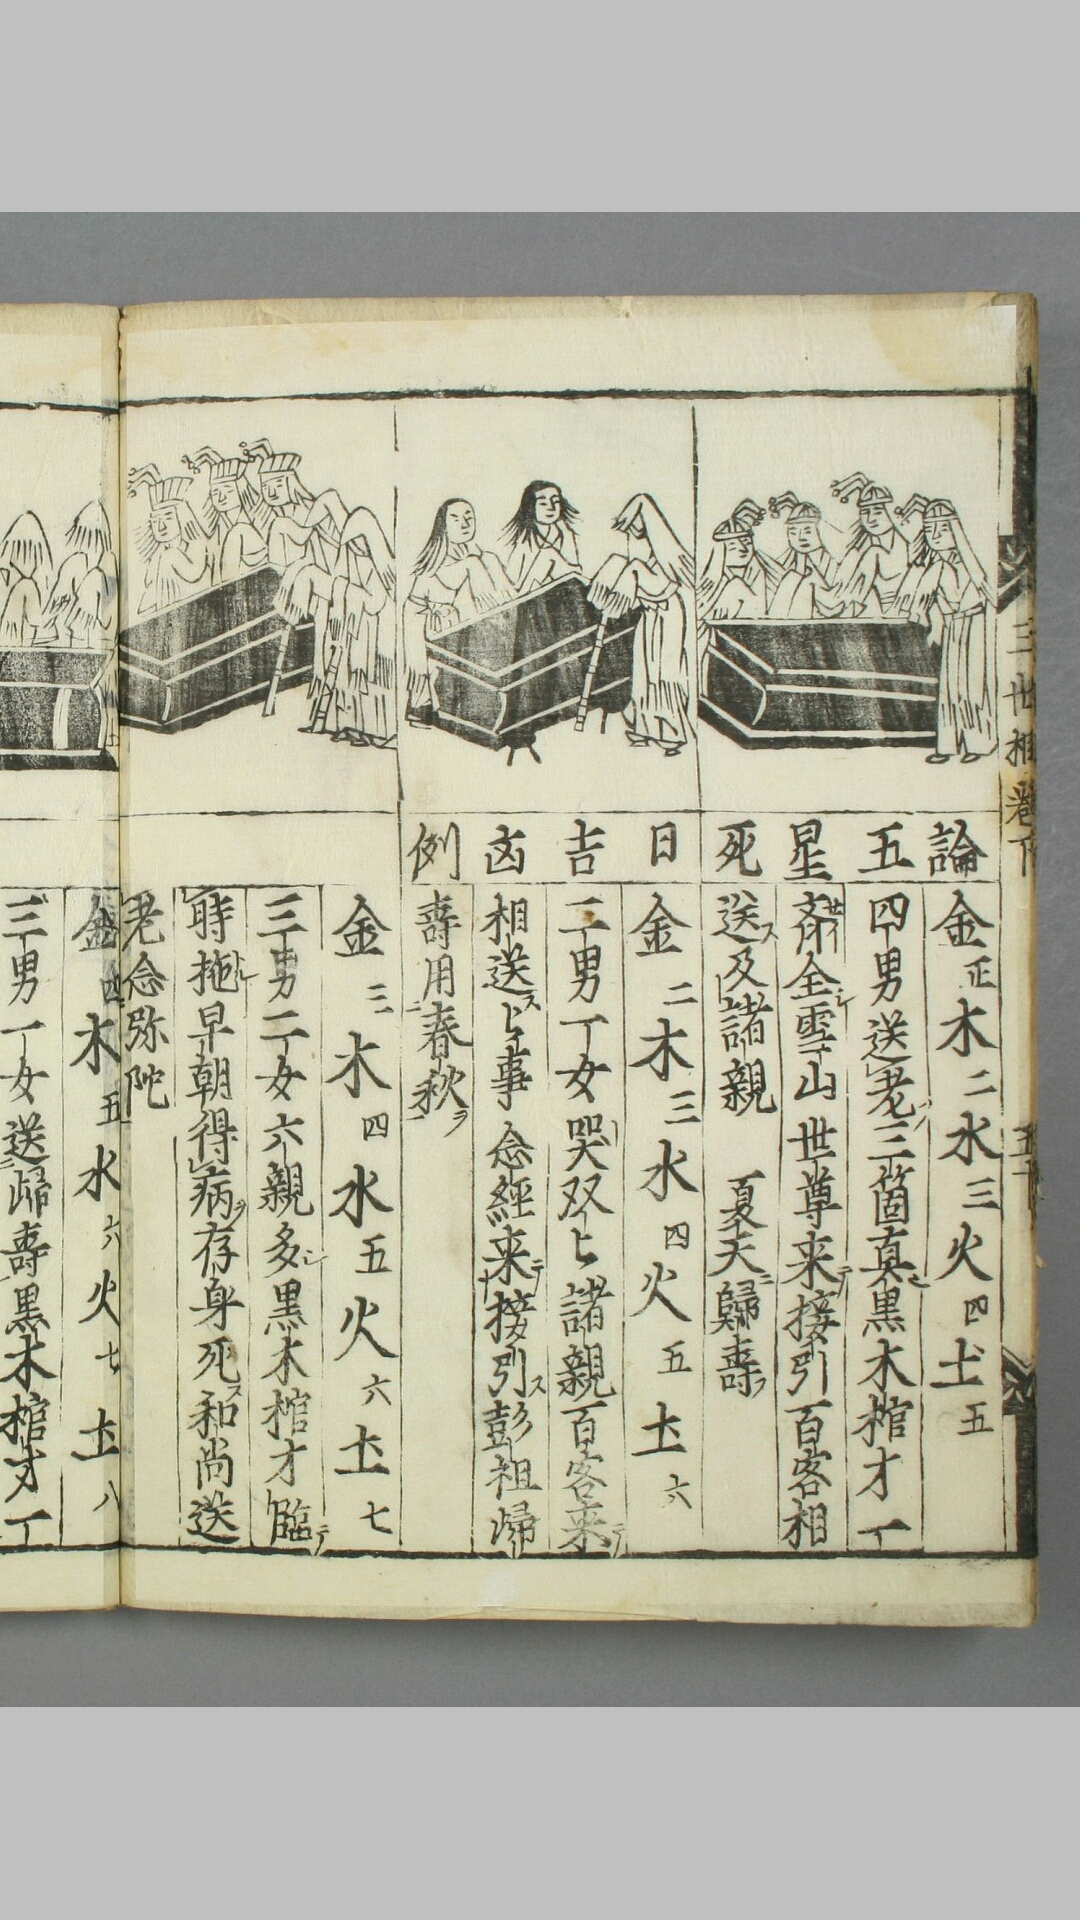 三世相卷下
論五星死日吉凶例
金正木二水三火四土五
四男送老三箇真黒木棺才一
斉全雪山世尊来接引百客相
送及諸親 夏天歸壽
金二木三水四火五土六
二男一女哭双々諸親百客来
相送 事念經来接引彭祖帰
壽用春秋
金三木四水五火六土七
三男二女六親多黒木棺才臨
時拖早朝得病存身死和尚送
老念弥陀
金四木五水六火七土八
三男一女送帰壽黒木棺才一